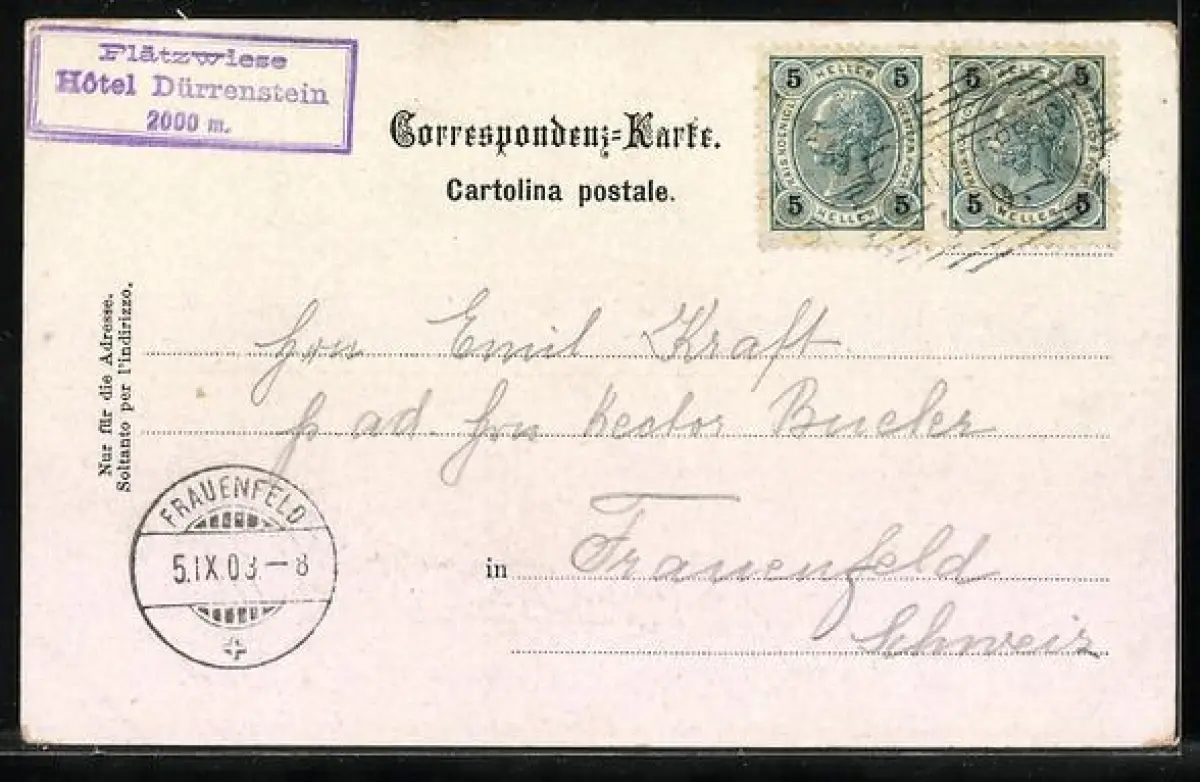 Plätzwiese
Hôtel Dürrenstein
2000 m.
Correspondenz-Karte.
Cartolina postale.
5 HELLER 5
5 HELLER 5
5 HELLER 5
5 HELLER 5
Nur für die Adresse.
Soltanto per l'indirizzo.
Hrn Emil Kraft
p. ad. Hrn Rector Bucher
FRAUENFELD
5.IX.03.-8
in Frauenfeld
Schweiz